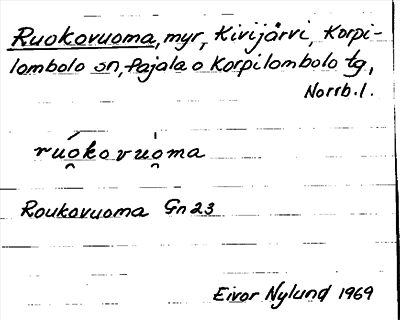 Ruokovuoma, myr, Kivijärvi, Korpi-
lombolo sn, Pajala o Korpilombolo tg,
Norrb.l.
ruo̯kovuo̯ma
Roukovuoma Gn 23
Eivor Nylund 1969